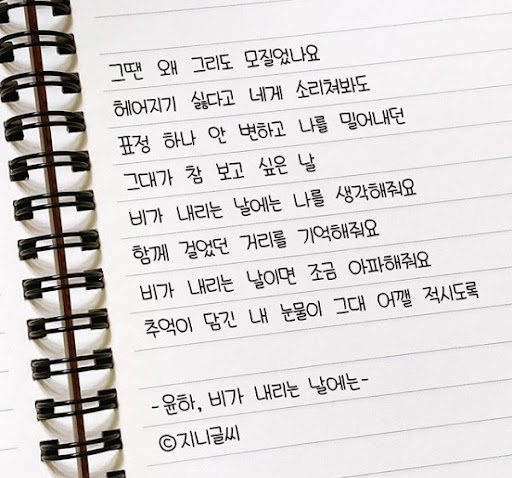 그땐 왜 그리도 모질었나요
헤어지기 싫다고 네게 소리쳐봐도
표정 하나 안 변하고 나를 밀어내던
그대가 참 보고 싶은 날
비가 내리는 날에는 나를 생각해줘요
함께 걸었던 거리를 기억해줘요
비가 내리는 날이면 조금 아파해줘요
추억이 담긴 내 눈물이 그대 어깰 적시도록
-윤하, 비가 내리는 날에는-
©지니글씨